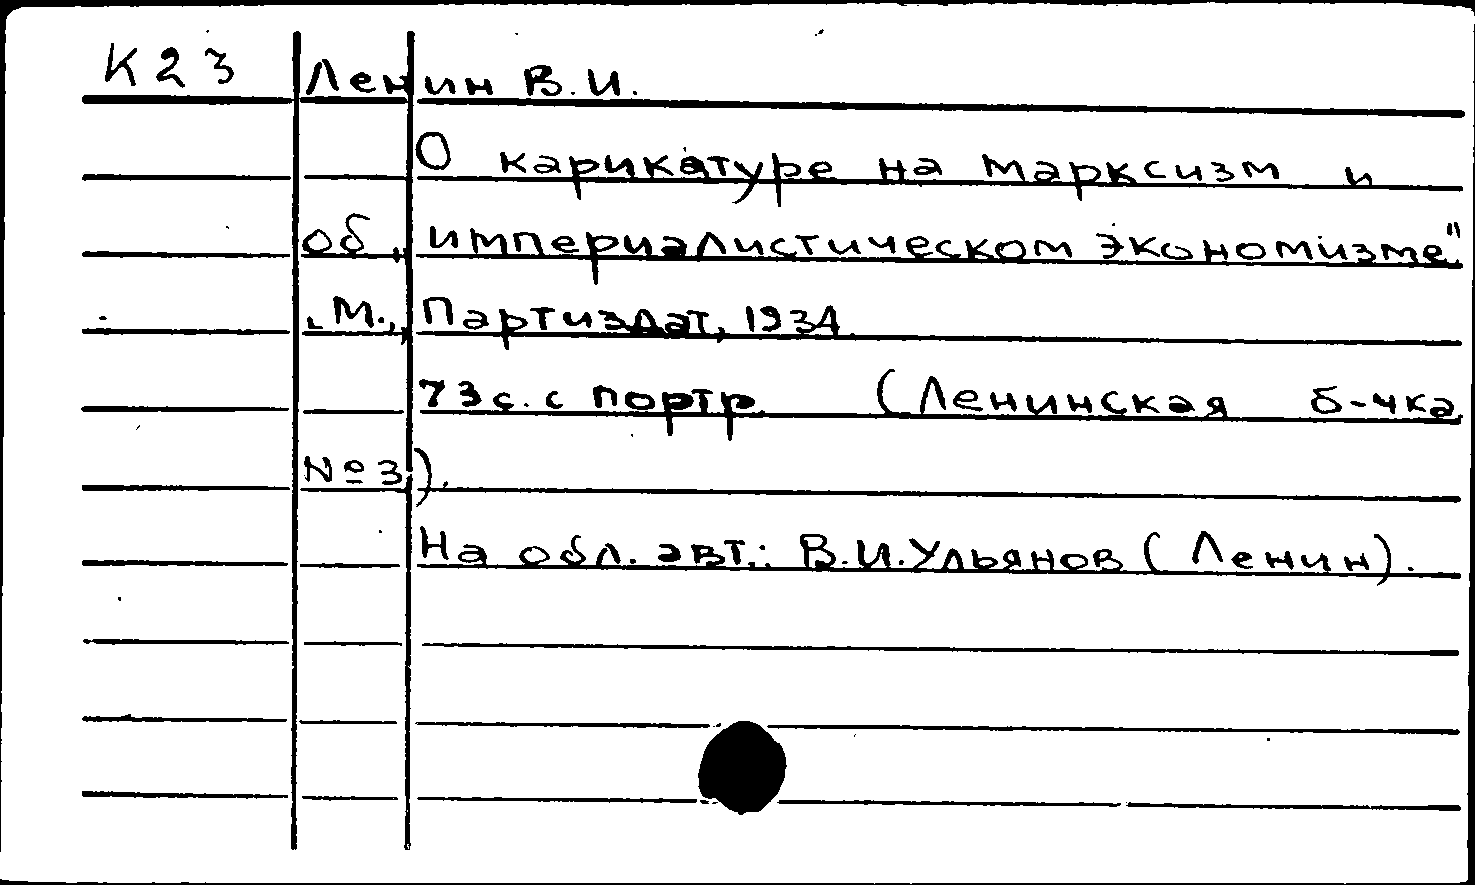 К23 Ленин В.И.
О карикатуре на марксизм и
об „империалистическом экономизме"
. М., Партиздат, 1934.
73 с. с портр. (Ленинская б-чка
№ 3).
На обл. авт.: В.И.Ульянов (Ленин).